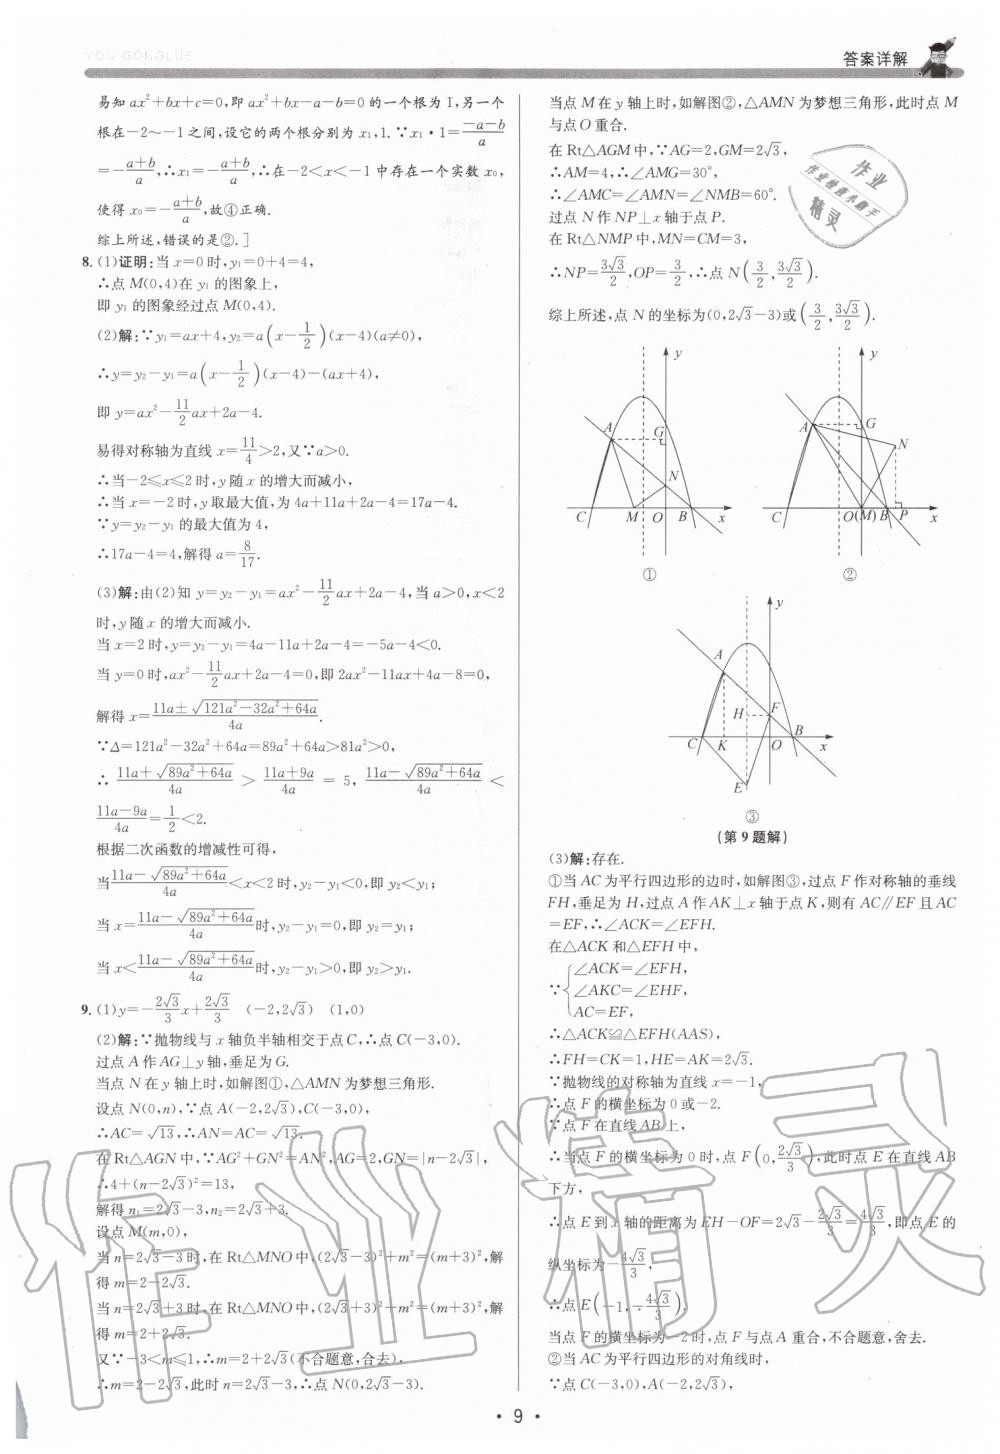 YOU GONGLUE
答案详解
易知 ax²+bx+c=0,即 ax²+bx-a-b=0的一个根为1,另一个
根在-2～-1之间,设它的两个根分别为 x₁,1.∵x₁·1=(-a-b)/a
=-(a+b)/a,∴x₁=-(a+b)/a,∴在-2<x<-1中存在一个实数 x₀,
使得 x₀=-(a+b)/a,故④正确.
综上所述,错误的是②.]
8.(1)证明:当 x=0时,y₁=0+4=4,
∴点M(0,4)在 y₁ 的图象上,
即 y₁ 的图象经过点 M(0,4).
(2)解:∵y₁=ax+4,y₂=a(x-1/2)(x-4)(a≠0),
∴y=y₂-y₁=a(x-1/2)(x-4)-(ax+4),
即 y=ax²-11/2 ax+2a-4.
易得对称轴为直线 x=11/4>2,又∵a>0.
∴当-2≤x≤2时,y随x的增大而减小,
∴当x=-2时,y取最大值,为4a+11a+2a-4=17a-4.
∵y=y₂-y₁ 的最大值为4,
∴17a-4=4,解得 a=8/17.
(3)解:由(2)知 y=y₂-y₁=ax²-11/2 ax+2a-4,当a>0,x<2
时,y随x的增大而减小.
当x=2时,y=y₂-y₁=4a-11a+2a-4=-5a-4<0.
当y=0时,ax²-11/2 ax+2a-4=0,即2ax²-11ax+4a-8=0,
解得 x=(11a±√(121a²-32a²+64a))/4a.
∵Δ=121a²-32a²+64a=89a²+64a>81a²>0,
∴(11a+√(89a²+64a))/4a>(11a+9a)/4a=5,(11a-√(89a²+64a))/4a<
(11a-9a)/4a=1/2<2.
根据二次函数的增减性可得,
当(11a-√(89a²+64a))/4a<x<2时,y₂-y₁<0,即y₂<y₁;
当x=(11a-√(89a²+64a))/4a时,y₂-y₁=0,即y₂=y₁;
当x<(11a-√(89a²+64a))/4a时,y₂-y₁>0,即y₂>y₁.
9.(1)y=-2√3/3 x+2√3/3 (-2,2√3) (1,0)
(2)解:∵抛物线与x轴负半轴相交于点C,∴点C(-3,0).
过点A作AG⊥y轴,垂足为G.
当点N在y轴上时,如解图①,△AMN为梦想三角形.
设点N(0,n),∵点A(-2,2√3),C(-3,0),
∴AC=√13,∴AN=AC=√13.
在Rt△AGN中,∵AG²+GN²=AN²,AG=2,GN=|n-2√3|,
∴4+(n-2√3)²=13,
解得 n₁=2√3-3,n₂=2√3+3.
设点M(m,0),
当n=2√3-3时,在Rt△MNO中,(2√3-3)²+m²=(m+3)²,解
得m=2-2√3.
当n=2√3+3时,在Rt△MNO中,(2√3+3)²+m²=(m+3)²,解
得m=2+2√3.
又∵-3<m≤1,∴m=2+2√3(不合题意,舍去),
∴m=2-2√3,此时n=2√3-3,∴点N(0,2√3-3).
当点M在y轴上时,如解图②,△AMN为梦想三角形,此时点M
与点O重合.
在Rt△AGM中,∵AG=2,GM=2√3,
∴AM=4,∴∠AMG=30°,
∴∠AMC=∠AMN=∠NMB=60°.
过点N作NP⊥x轴于点P.
在Rt△NMP中,MN=CM=3,
∴NP=3√3/2,OP=3/2,∴点N(3/2,3√3/2).
综上所述,点N的坐标为(0,2√3-3)或(3/2,3√3/2).
y A G N C M O B x
①
y A G N C O(M) B P x
②
y A F H B C K O x E
③
(第9题解)
(3)解:存在.
①当AC为平行四边形的边时,如解图③,过点F作对称轴的垂线
FH,垂足为H,过点A作AK⊥x轴于点K,则有AC∥EF且AC
=EF,∴∠ACK=∠EFH.
在△ACK和△EFH中,
∠ACK=∠EFH,
∵{∠AKC=∠EHF,
AC=EF,
∴△ACK≌△EFH(AAS),
∴FH=CK=1,HE=AK=2√3.
∵抛物线的对称轴为直线x=-1,
∴点F的横坐标为0或-2.
∵点F在直线AB上,
∴当点F的横坐标为0时,点F(0,2√3/3),此时点E在直线AB
下方,
∴点E到x轴的距离为EH-OF=2√3-2√3/3=4√3/3,即点E的
纵坐标为-4√3/3,
∴点E(-1,-4√3/3).
当点F的横坐标为-2时,点F与点A重合,不合题意,舍去.
②当AC为平行四边形的对角线时,
∵点C(-3,0),A(-2,2√3),
·9·
作业
作业检查小助手
精灵
作业精灵